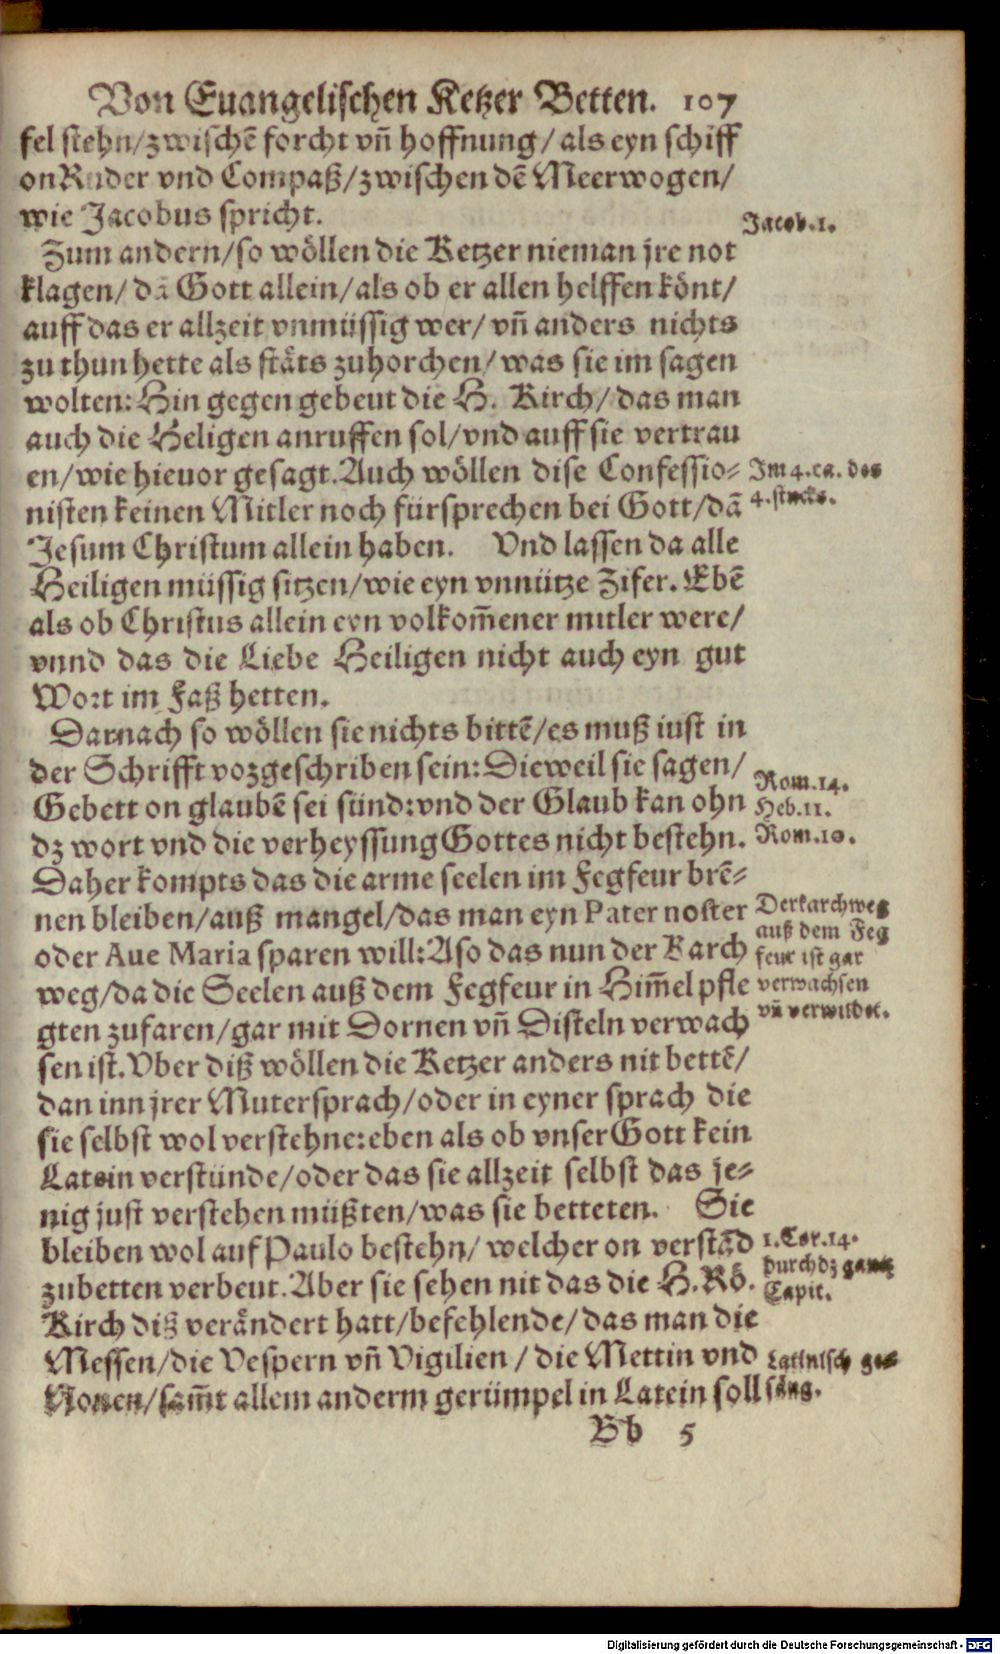 Von Euangelischen Ketzer Betten. 107
fel stehn/zwischē forcht vñ hoffnung/als eyn schiff
on Ruder vnd Compaß/zwischen dē Meerwogen/
wie Jacobus spricht.
Jacob.1.
Zum andern/so wöllen die Ketzer nieman jre not
klagen/dā Gott allein/als ob er allen helffen könt/
auff das er allzeit vnmüssig wer/vñ anders nichts
zu thun hette als stäts zuhorchen/was sie im sagen
wolten: Hin gegen gebeut die H. Kirch/das man
auch die Heligen anruffen sol/vnd auff sie vertrau
en/wie hieuor gesagt. Auch wöllen dise Confessio-
Im 4.ca. des
nisten keinen Mitler noch fürsprechen bei Gott/dā
4.stucks.
Jesum Christum allein haben. Vnd lassen da alle
Heiligen müssig sitzen/wie eyn vnnütze Zifer. Ebē
als ob Christus allein eyn volkom̄ener mitler were/
vnnd das die Liebe Heiligen nicht auch eyn gut
Wort im Faß hetten.
Darnach so wöllen sie nichts bittē/es muß iust in
der Schrifft vorgeschriben sein: Dieweil sie sagen/
Rom.14.
Gebett on glaubē sei sünd: vnd der Glaub kan ohn
Heb.11.
dz wort vnd die verheyssung Gottes nicht bestehn.
Rom.10.
Daher kompts das die arme seelen im Fegfeur brē-
nen bleiben/auß mangel/das man eyn Pater noster
Der karchweg
oder Aue Maria sparen will: Aso das nun der Karch
auß dem Feg
feur ist gar
weg/da die Seelen auß dem Fegfeur in Him̄el pfle
verwachsen
gten zufaren/gar mit Dornen vñ Disteln verwach
vñ verwildet.
sen ist. Vber diß wöllen die Ketzer anders nit bettē/
dan inn jrer Mutersprach/oder in eyner sprach die
sie selbst wol verstehne: eben als ob vnser Gott kein
Latein verstünde/oder das sie allzeit selbst das je-
nig just verstehen müßten/was sie betteten. Sie
bleiben wol auf Paulo bestehn/welcher on verstād
1.Cor.14.
durch dz gantz
zubetten verbeut. Aber sie sehen nit das die H. Rö.
Capit.
Kirch diß verändert hatt/befehlende/das man die
Messen/die Vespern vñ Vigilien/die Mettin vnd
Latinisch ge-
Nonen/sam̄t allem anderm gerümpel in Latein soll
säng.
Bb 5
Digitalisierung gefördert durch die Deutsche Forschungsgemeinschaft - DFG